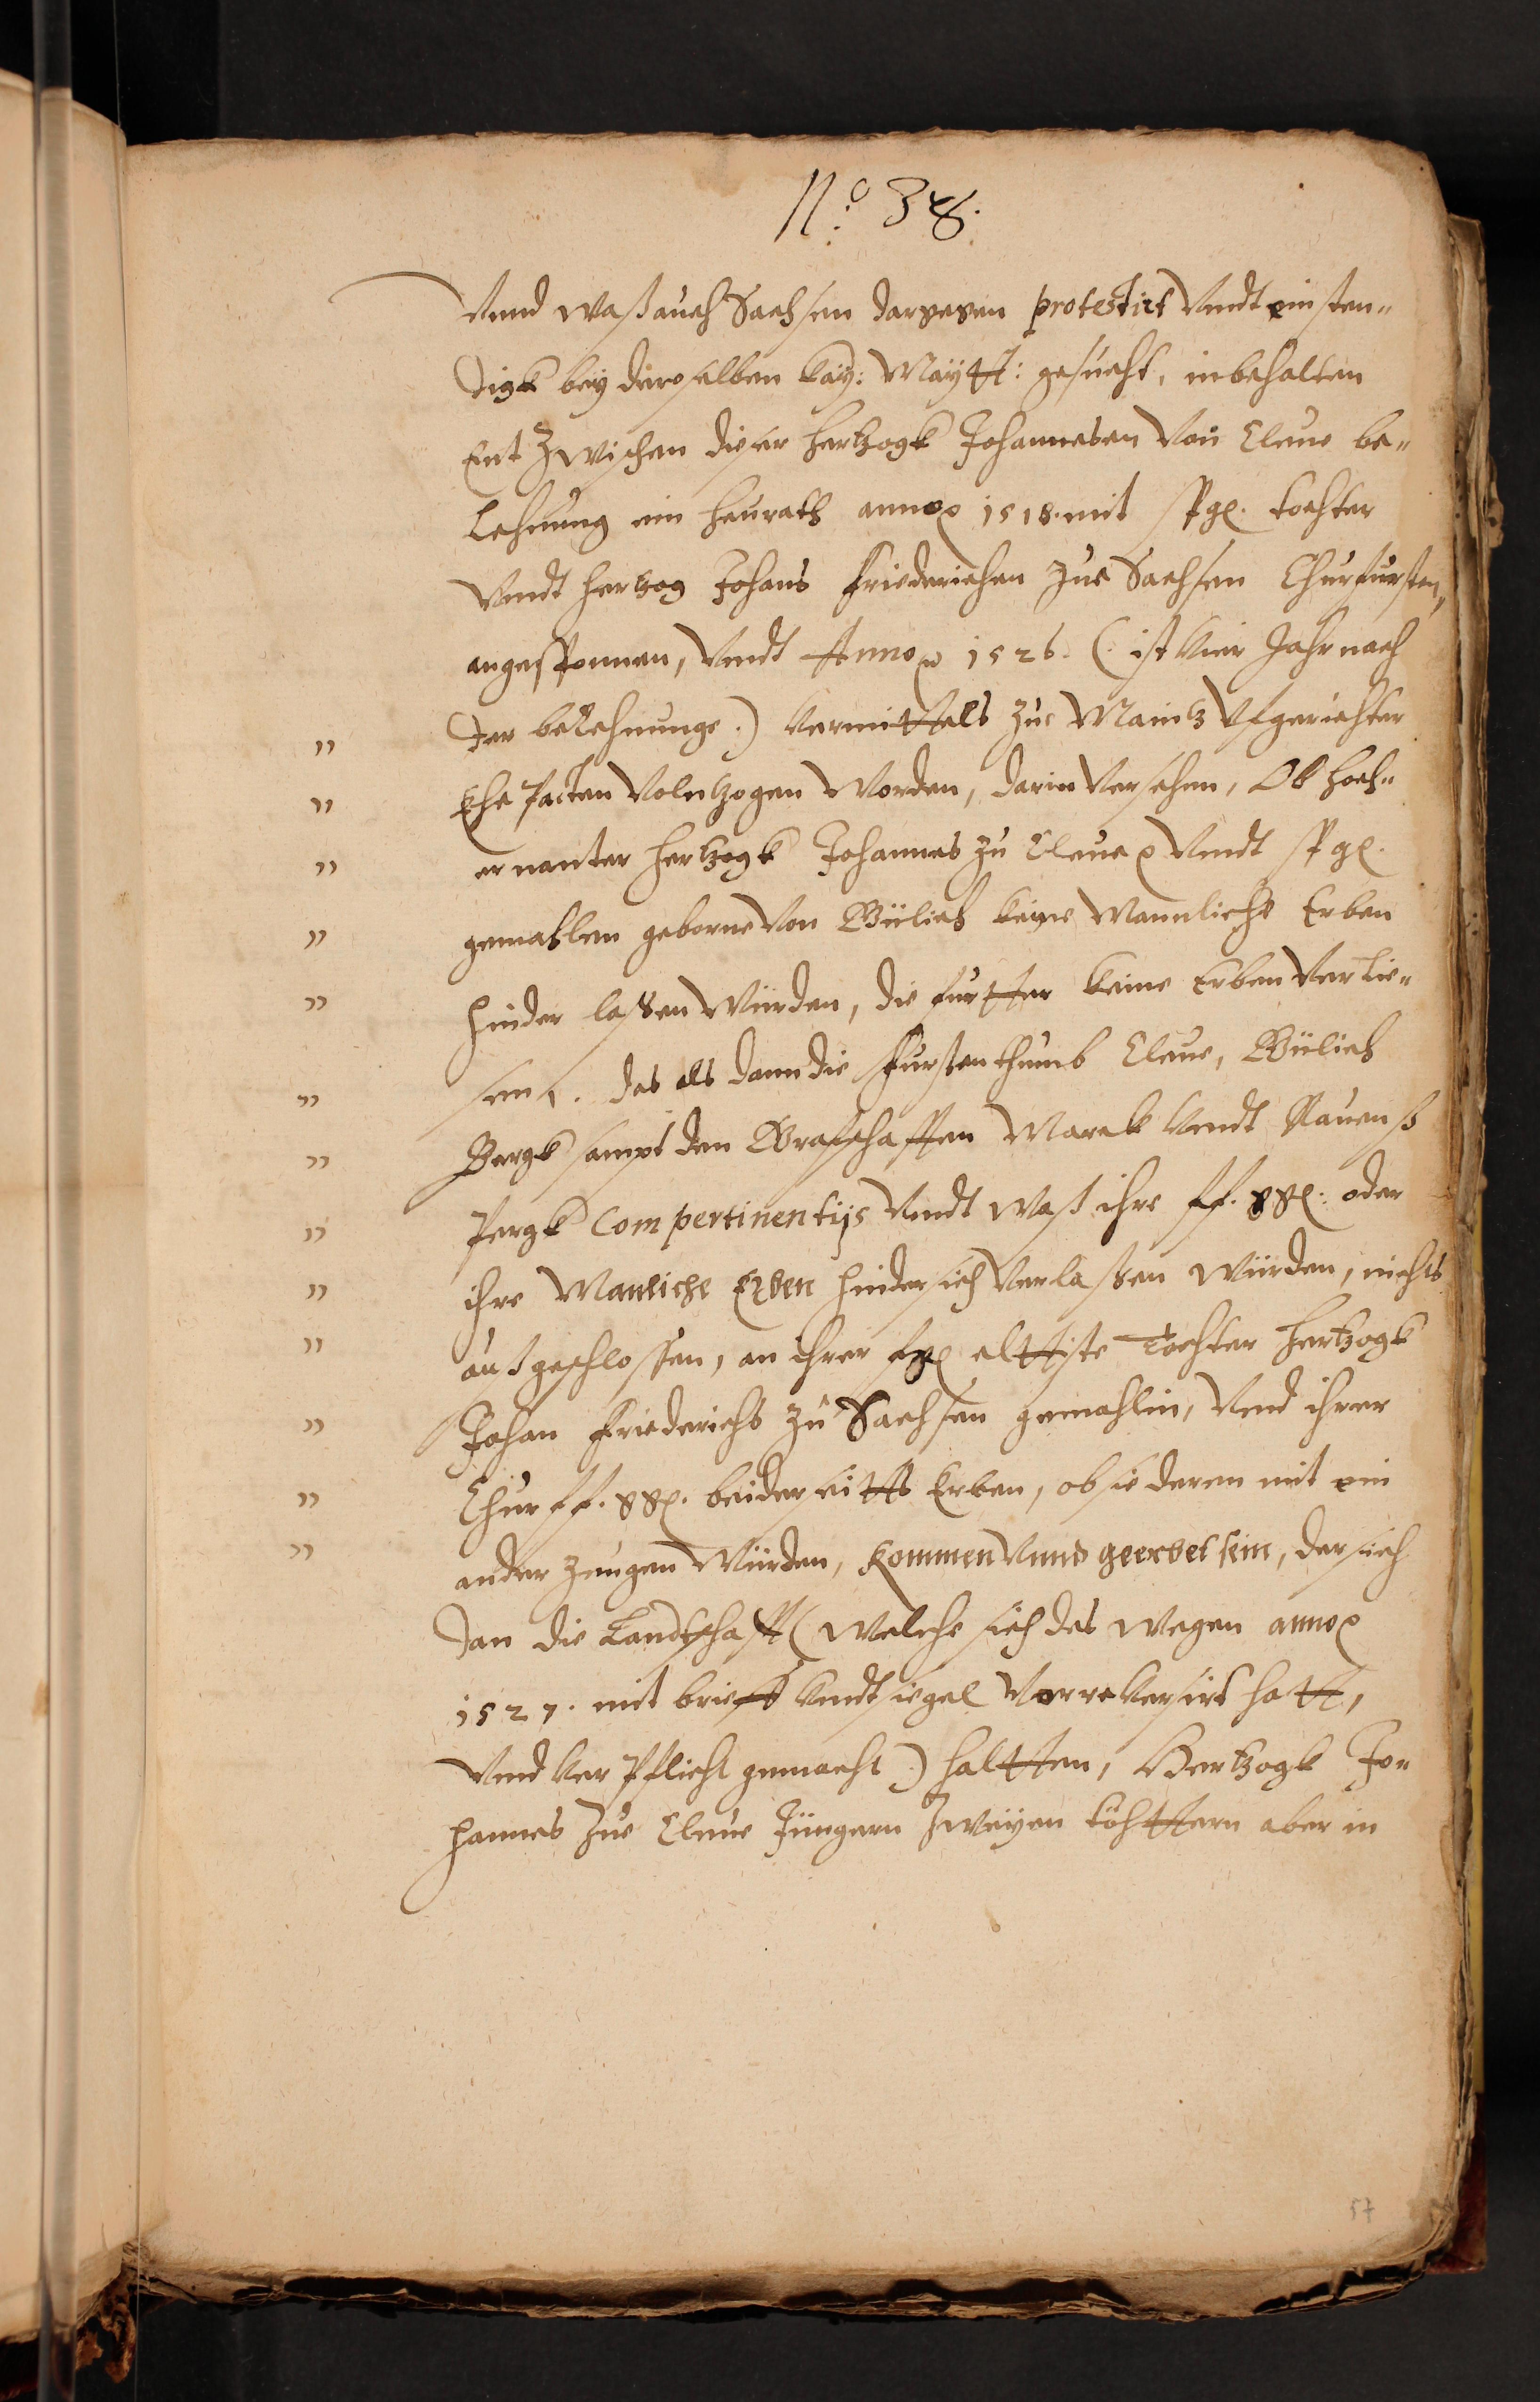 No. 38.
Vnnd waß auch Sachsen dargegen protestirt Vnndt einsten„
digk bey deroselben kay: Maytt: gesucht, inbehalten
Entzwischen dieser hertzogk Johannesen Von Cleue be„
lehnung ein heurath anno 1518. mit fgl. tochter
Vnndt hertzog Johans friederichen zue Sachsen Churfursten,
angesponnen, Vnndt Anno 1526. (: ist Vier Jahr nach
der belehnunge.) Vermittels zue Maintz Vfgerichter
Ehe Pacten Volnbzogen Worden, darin Versehen, Ob hoch„
ernanter hertzogk Johannes zu Cleue Vnndt fgl.
gemahlen geborne Von Gülich keine Mannliche Erben
hinder laßen Würden, die furtter keine Erben Verlie„
sen. das als dann die Fursten thumb Cleue, Gülich
Bergk sampt den Grafschafften Marck Vnndt Rauenß
Pergk Compertinentijs Vnndt Waß ihre ff. ggl: oder
ihre Manliche Erben hinder sich Verlaßen Würden, nichts
außgeschlossen, an ihrer fgl elttiste Tochter hertzogk
Johan friederichs zu Sachsen gemahlin, Vnnd ihrer
Chur ff. ggl. beiderseitts Erben, ob sie deren mit ein
ander Zeugen Würden, Kommen Vnnd geerbet sein, der sich
dan die Landtschafft (Welche sich des wegen anno
1527. mit brieff Vnndt siegel Verreversirt hatt,
Vnnd Ver Pflicht gemacht) haltten, Hertzogk Jo„
hannes Zue Cleue Jüngern Zweyen töchttern aber in
57